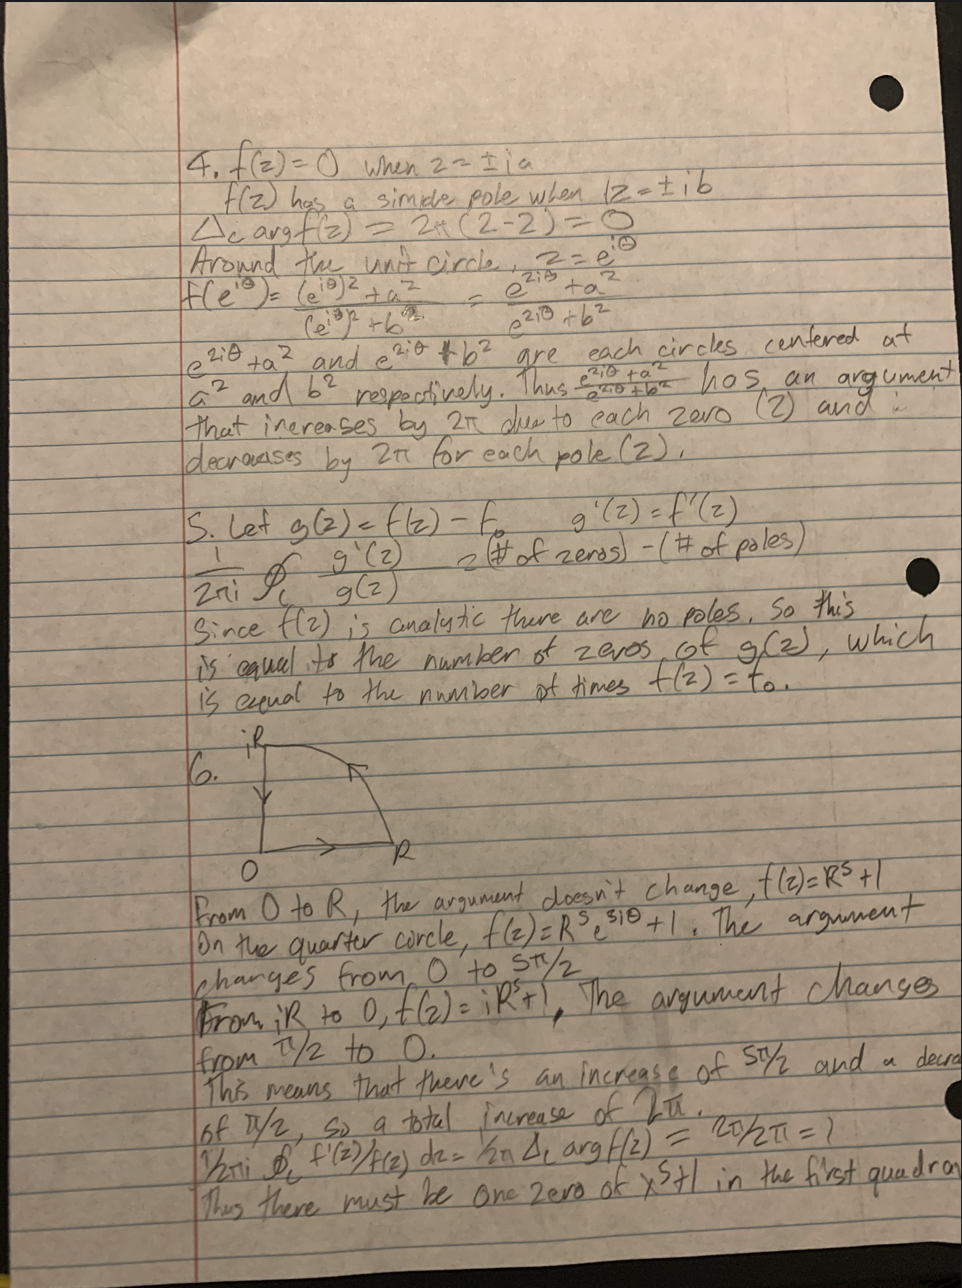 4. f(z)=0 when z=±ia
f(z) has a simple pole when z=±ib
Δc arg f(z) = 2π(2-2)=0
Around the unit circle, z=e^iθ
f(e^iθ)= ((e^iθ)²+a²)/((e^iθ)²+b²) = (e^2iθ+a²)/(e^2iθ+b²)
e^2iθ+a² and e^2iθ+b² are each circles centered at
a² and b² respectively. Thus (e^2iθ+a²)/(e^2iθ+b²) has an argument
that increases by 2π due to each zero (2) and
decreases by 2π for each pole (2).
5. Let g(z)=f(z)-f₀ g'(z)=f'(z)
1/(2πi) ∮c g'(z)/g(z) = (# of zeros)-(# of poles)
Since f(z) is analytic there are no poles, so this
is equal to the number of zeros of g(z), which
is equal to the number of times f(z)=f₀.
iR
6.
R
0
From 0 to R, the argument doesn't change, f(z)=R⁵+1
On the quarter circle, f(z)=R⁵e^5iθ+1. The argument
changes from 0 to 5π/2
From iR to 0, f(z)=iR⁵+1, The argument changes
from π/2 to 0.
This means that there's an increase of 5π/2 and a decrea
of π/2, so a total increase of 2π.
1/2πi ∮c f'(z)/f(z) dz = 1/2π Δc arg f(z) = 2π/2π = 1
Thus there must be one zero of x⁵+1 in the first quadran